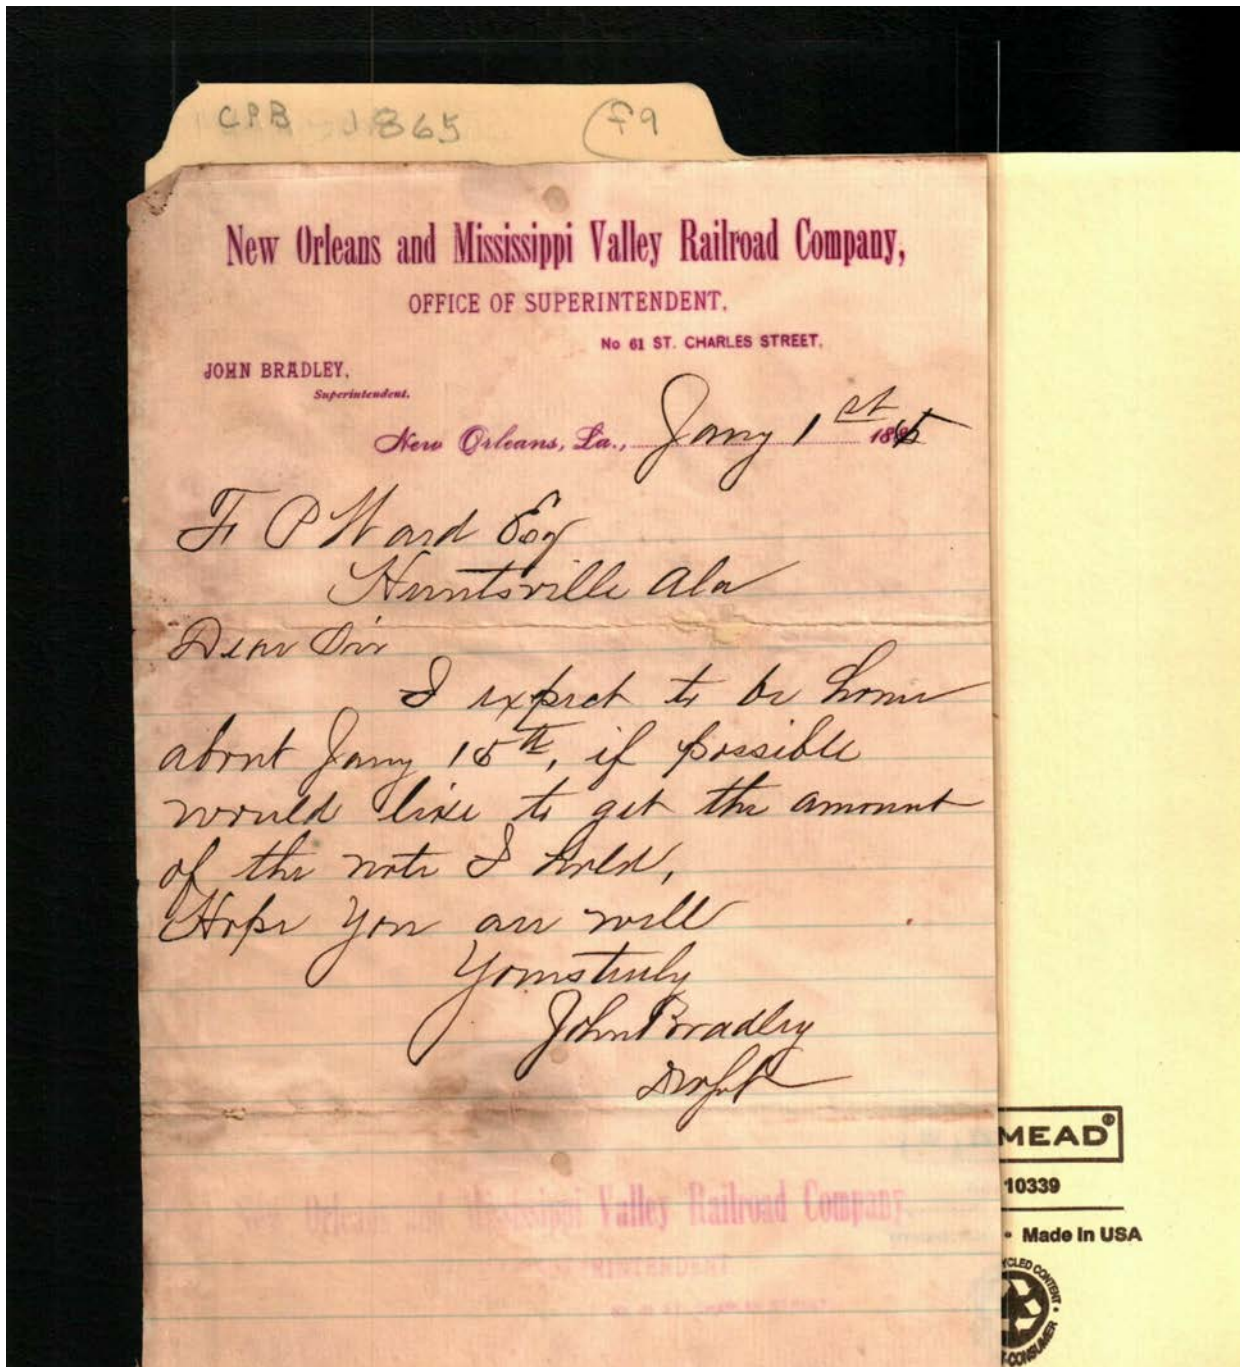 CPB 1865 f9
New Orleans and Mississippi Valley Railroad Company,
OFFICE OF SUPERINTENDENT.
No 61 ST. CHARLES STREET.
JOHN BRADLEY,
Superintendent.
New Orleans, La., Jany 1st 188
F P Ward Esq
Huntsville Ala
Dear Sir
I expect to be home
about Jany 15th, if possible
would like to get the amount
of the note I hold,
Hope you are well
Yours truly
John Bradley
Supt
New Orleans and Mississippi Valley Railroad Company
RINTENDENT
MEAD®
10339
• Made in USA
YCLED CONTENT •
-CONSUMER